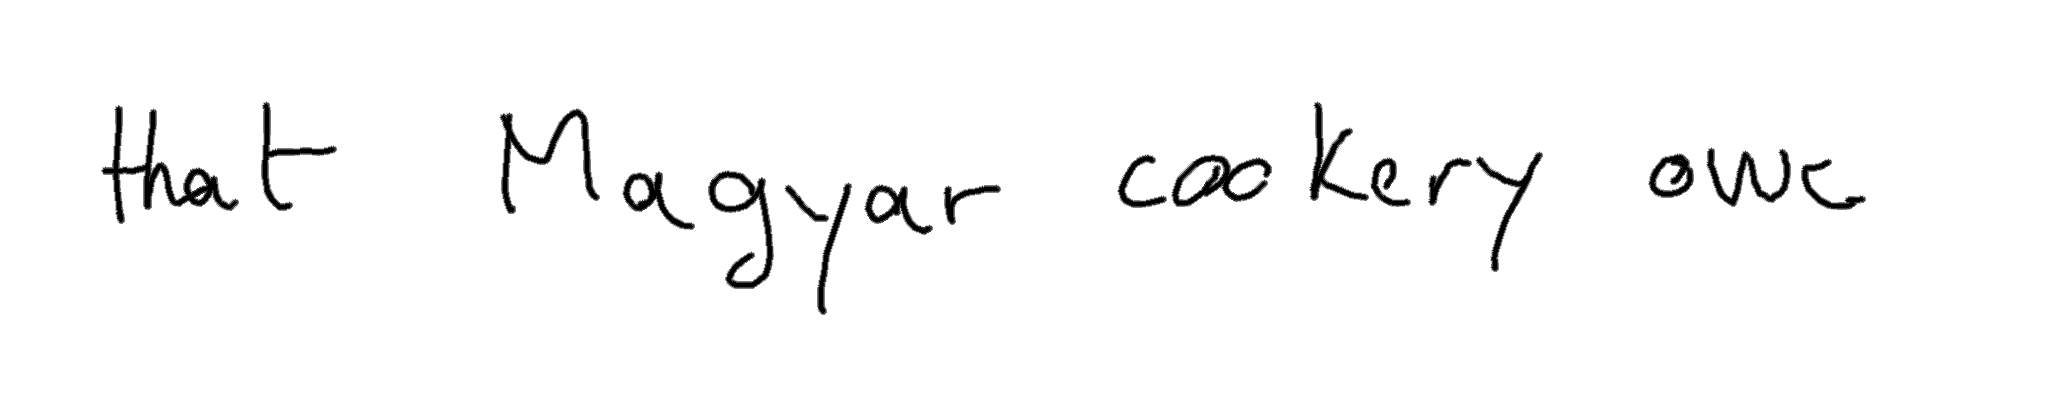 that Magyar cookery owe